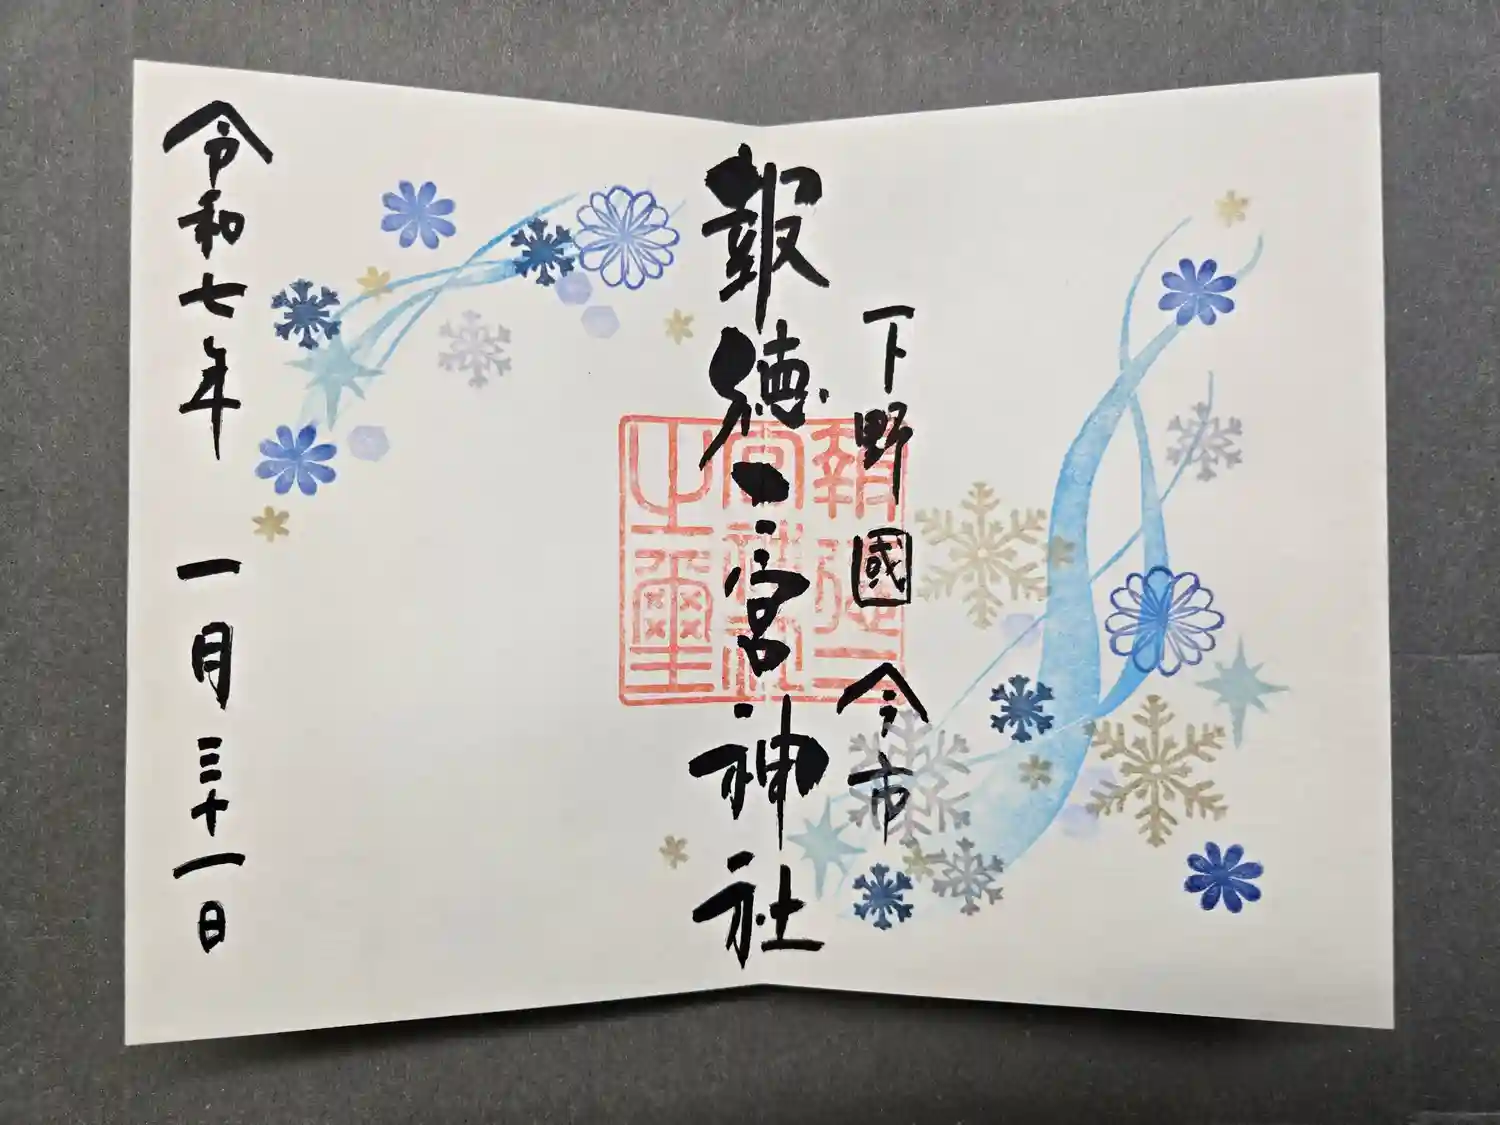 下野國 今市
報徳二宮神社
報徳二
宮神社
之璽
令和七年 一月三十一日